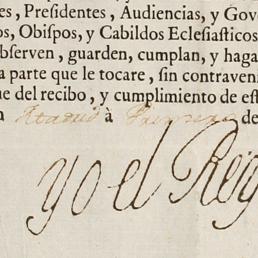 es, Presidentes, Audiencias, y Gov
os, Obiſpos, y Cabildos Eclesiaſticos
bſerven, guarden, cumplan, y haga
a parte que le tocare, sin contraven
ue del recibo, y cumplimiento de eſt
à de
yo el Rey